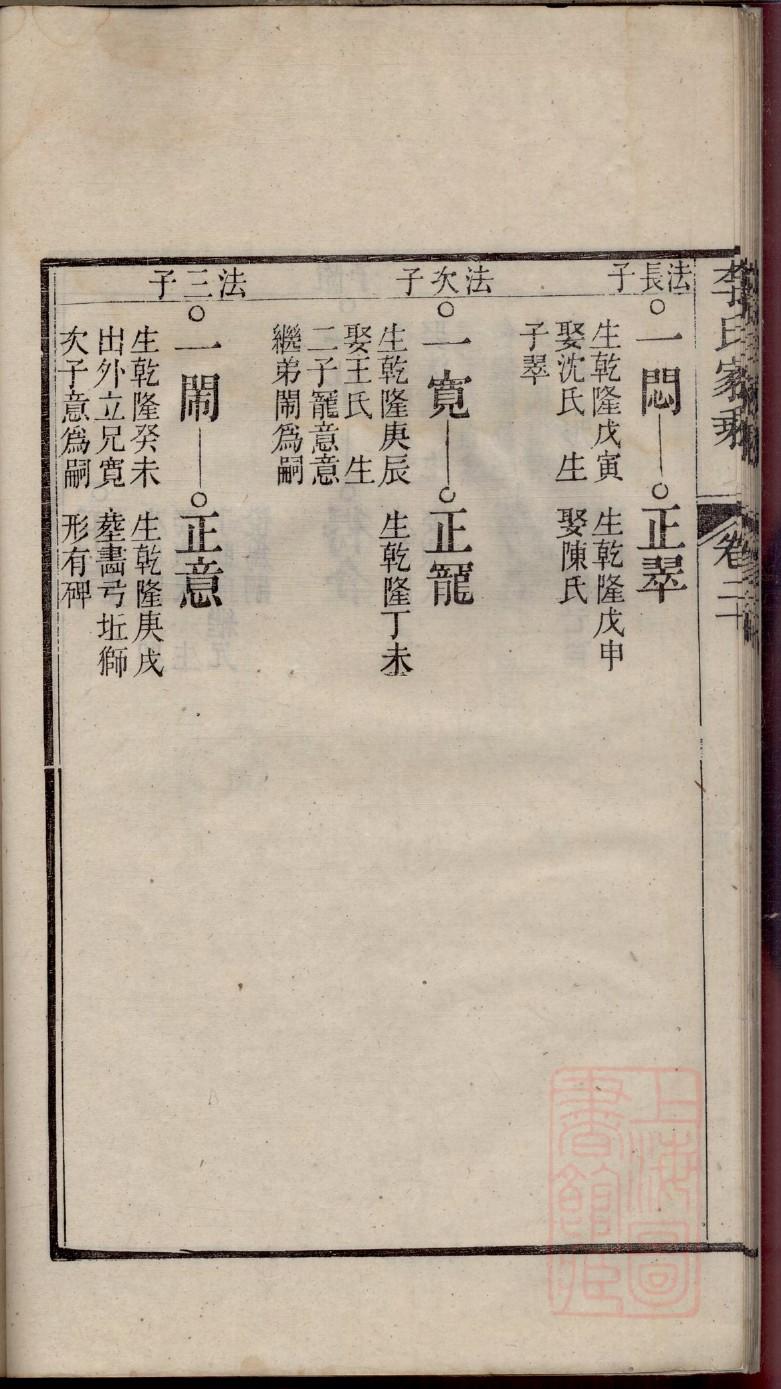 李氏家乘 卷二十
法長子
一悶
生乾隆戊寅
娶沈氏 生
子翠
正翠
生乾隆戊申
娶陳氏
法次子
一寬
生乾隆庚辰
娶王氏 生
二子寵意意
繼弟鬧為嗣
正寵
生乾隆丁未
法三子
一鬧
生乾隆癸未
出外立兄寬
次子意為嗣
正意
生乾隆庚戌
塟畵弓坵獅
形有碑
上海圖
書館藏